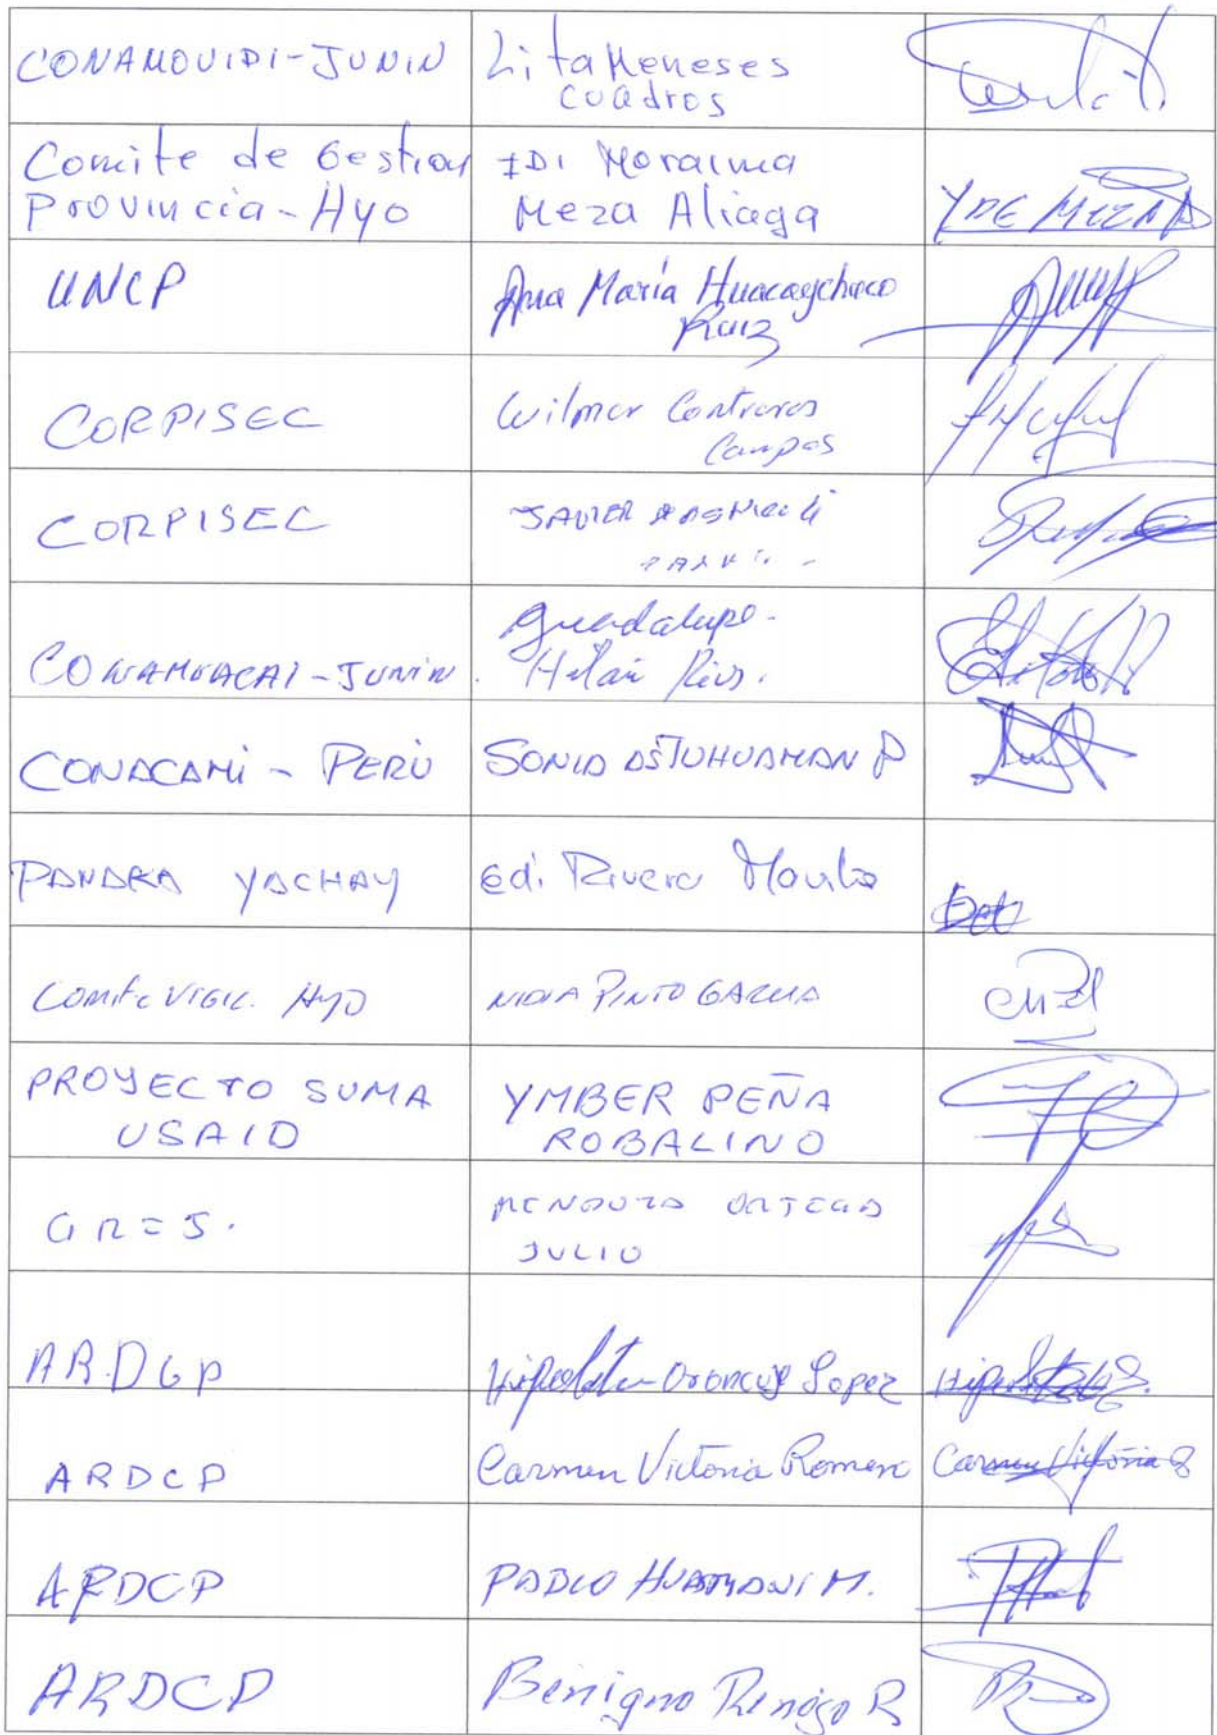 CONAMOVIDI-JUNIN
Lita Meneses
Cuadros
Comite de Gestion
Provincia-Hyo
IDI Moraima
Meza Aliaga
YDE MEZA A
UNCP
Ana María Huacaychuco
Ruiz
CORPISEC
Wilmer Contreras
Campos
CORPISEC
JAVIER
CONAMUACAI-JUNIN.
Guadalupe.
Hilario Rivs.
CONACAMI - PERÚ
SONIA ASTUHUAMAN P
PANDARA YACHAY
Edi Rivera
Comite VIGIL. Hyo
NIDIA PINTO GARCIA
PROYECTO SUMA
USAID
YMBER PEÑA
ROBALINO
MENDOZA ORTEGA
JULIO
ARDGP
Lopez
ARDCP
Carmen Victoria Romero
Carmen Victoria
ARDCP
PABLO HUAMANI M.
ARDCP
Benigno Rinojo R